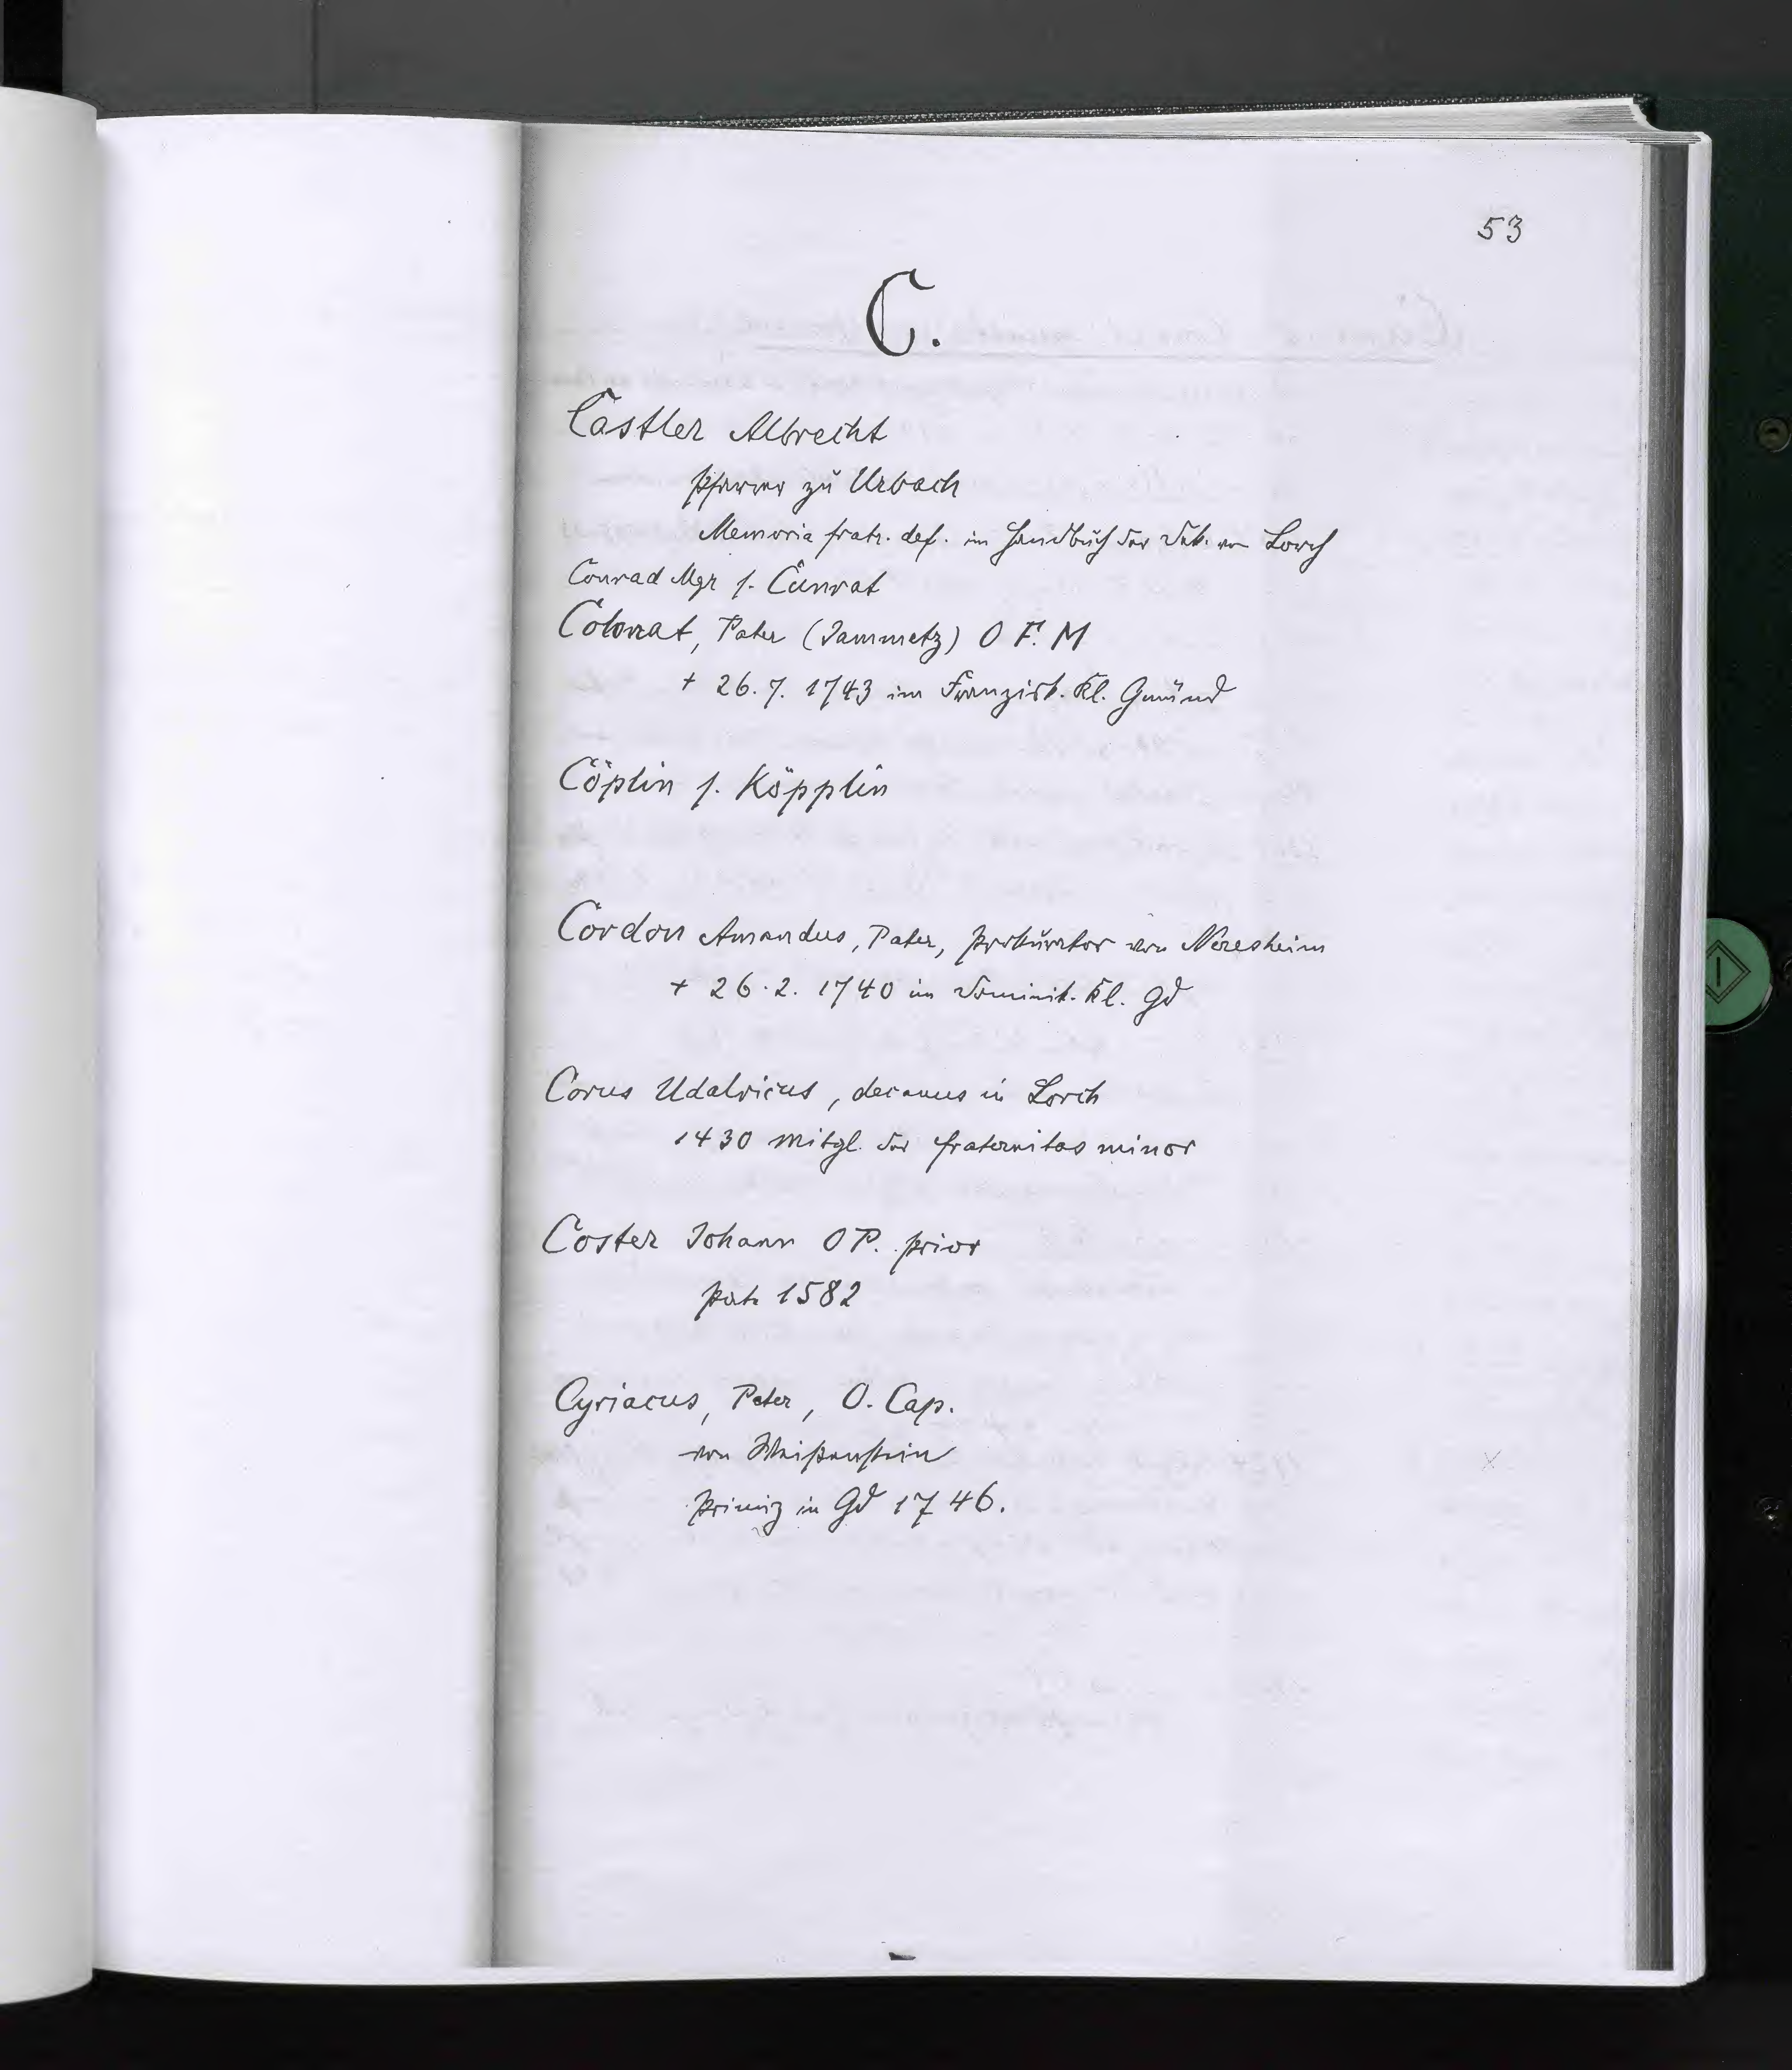 53
C.
Castler Albrecht
Pfarrer zu Urbach
Memoria fratr. def. im Handbuch der Dek. von Lorch
Conrad Mgr s. Cunrat
Colonat, Pater (Jammetz) O F. M
+ 26. 7. 1743 im Franzisk. Kl. Gmünd
Cöplin s. Köpplin
Cordon Amandus, Pater, Prokurator von Neresheim
+ 26. 2. 1740 im Dominik. Kl. Gd
Corus Udalricus, decanus in Lorch
1430 Mitgl. der fraternitas minor
Coster Johann O P. prior
1582
Cyriacus, Pater, O. Cap.
von Weißenstein
Primiz in Gd 1746.